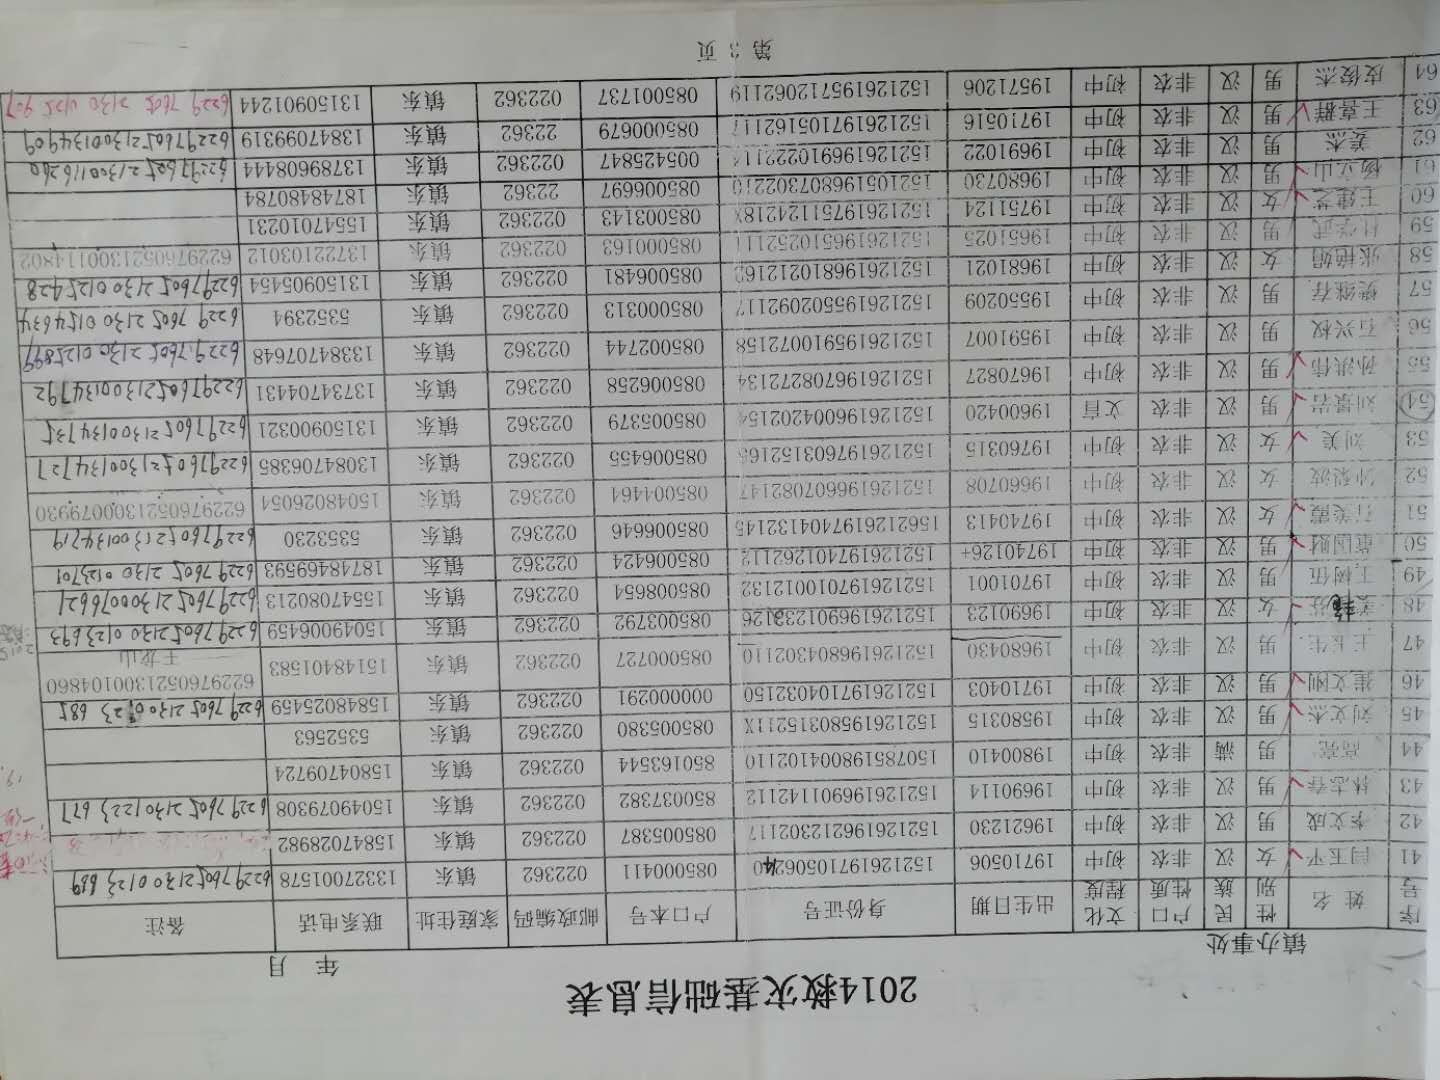 2014救灾基础信息表
镇办事处 年 月
序号 姓 名 性别 民族 户口性质 文化程度 出生日期 身份证号 户口本号 邮政编码 家庭住址 联系电话 备注
41 闫玉平 女 汉 非农 初中 19710506 085000411 022362 镇东 13327001578
42 李文成 男 汉 非农 初中 19621230 152126196212302117 085005387 022362 镇东 15847028982
43 林志春 男 汉 非农 初中 19690114 152126196901142112 850037382 022362 镇东 15049079308
44 高亮 男 满 非农 初中 19800410 150785198004102110 850163544 022362 镇东 15804709724
45 刘文杰 男 汉 非农 初中 19580315 15212619580315211X 085005380 022362 镇东 5352563
46 崔文刚 男 汉 非农 初中 19710403 152126197104032150 000000291 022362 镇东 15848025459
47 王长生 男 汉 非农 初中 19680430 152126196804302110 085000727 022362 镇东 15148401583 6229760521300104860 王龙山
48 女 汉 非农 初中 19690123 085003792 022362 镇东 15049006459 6229760521300123693
49 王树伍 男 汉 非农 初中 19701001 152126197010012132 085008654 022362 镇东 15547080213 6229760521300076621
50 董国财 男 汉 非农 初中 19740126+ 152126197401262112 085006424 022362 镇东 18748469593 6229760521300123701
51 石美霞 女 汉 非农 初中 19740413 1562126197404132145 085006646 022362 镇东 5353230 6229760521300134719
52 女 汉 非农 初中 19660708 152126196607082147 085004464 022362 镇东 15048026054 6229760521300079930
53 刘美 女 汉 非农 初中 19760315 085006455 022362 镇东 13084706385 6229760521300134727
54 刘景岩 男 汉 非农 文盲 19600420 085005379 022362 镇东 13150900321 6229760521300134735
55 孙洪伟 男 汉 非农 初中 19670827 152126196708272134 085006258 022362 镇东 13734704431 6229760521300134792
56 石兴权 男 汉 非农 初中 19591007 152126195910072158 085002744 022362 镇东 13384707648 6229760521300125899
57 樊继存 男 汉 非农 初中 19550209 152126195502092117 085000313 022362 镇东 5352394 6229760521300154634
58 张艳娟 女 汉 非农 初中 19681021 085006481 022362 镇东 13150905454 6229760521300125428
59 杜学武 男 汉 非农 初中 19651025 152126196510252111 085000163 022362 镇东 13722103012 6229760521300114802
60 王建芝 女 汉 非农 初中 19751124 15212619751124218X 085003143 022362 镇东 15547010231
61 杨立山 男 汉 非农 初中 19680730 152105196807302210 085006697 22362 镇东 18748480784
62 姜杰 男 汉 非农 初中 19691022 005425847 022362 镇东 13789608444 6229760521300116260
63 王喜群 男 汉 非农 初中 19710516 152126197105162117 085000679 22362 镇东 13847099319 6229760521300134909
64 皮俊杰 男 汉 非农 初中 19571206 152126195712062119 085001737 022362 镇东 13150901244
第 3 页